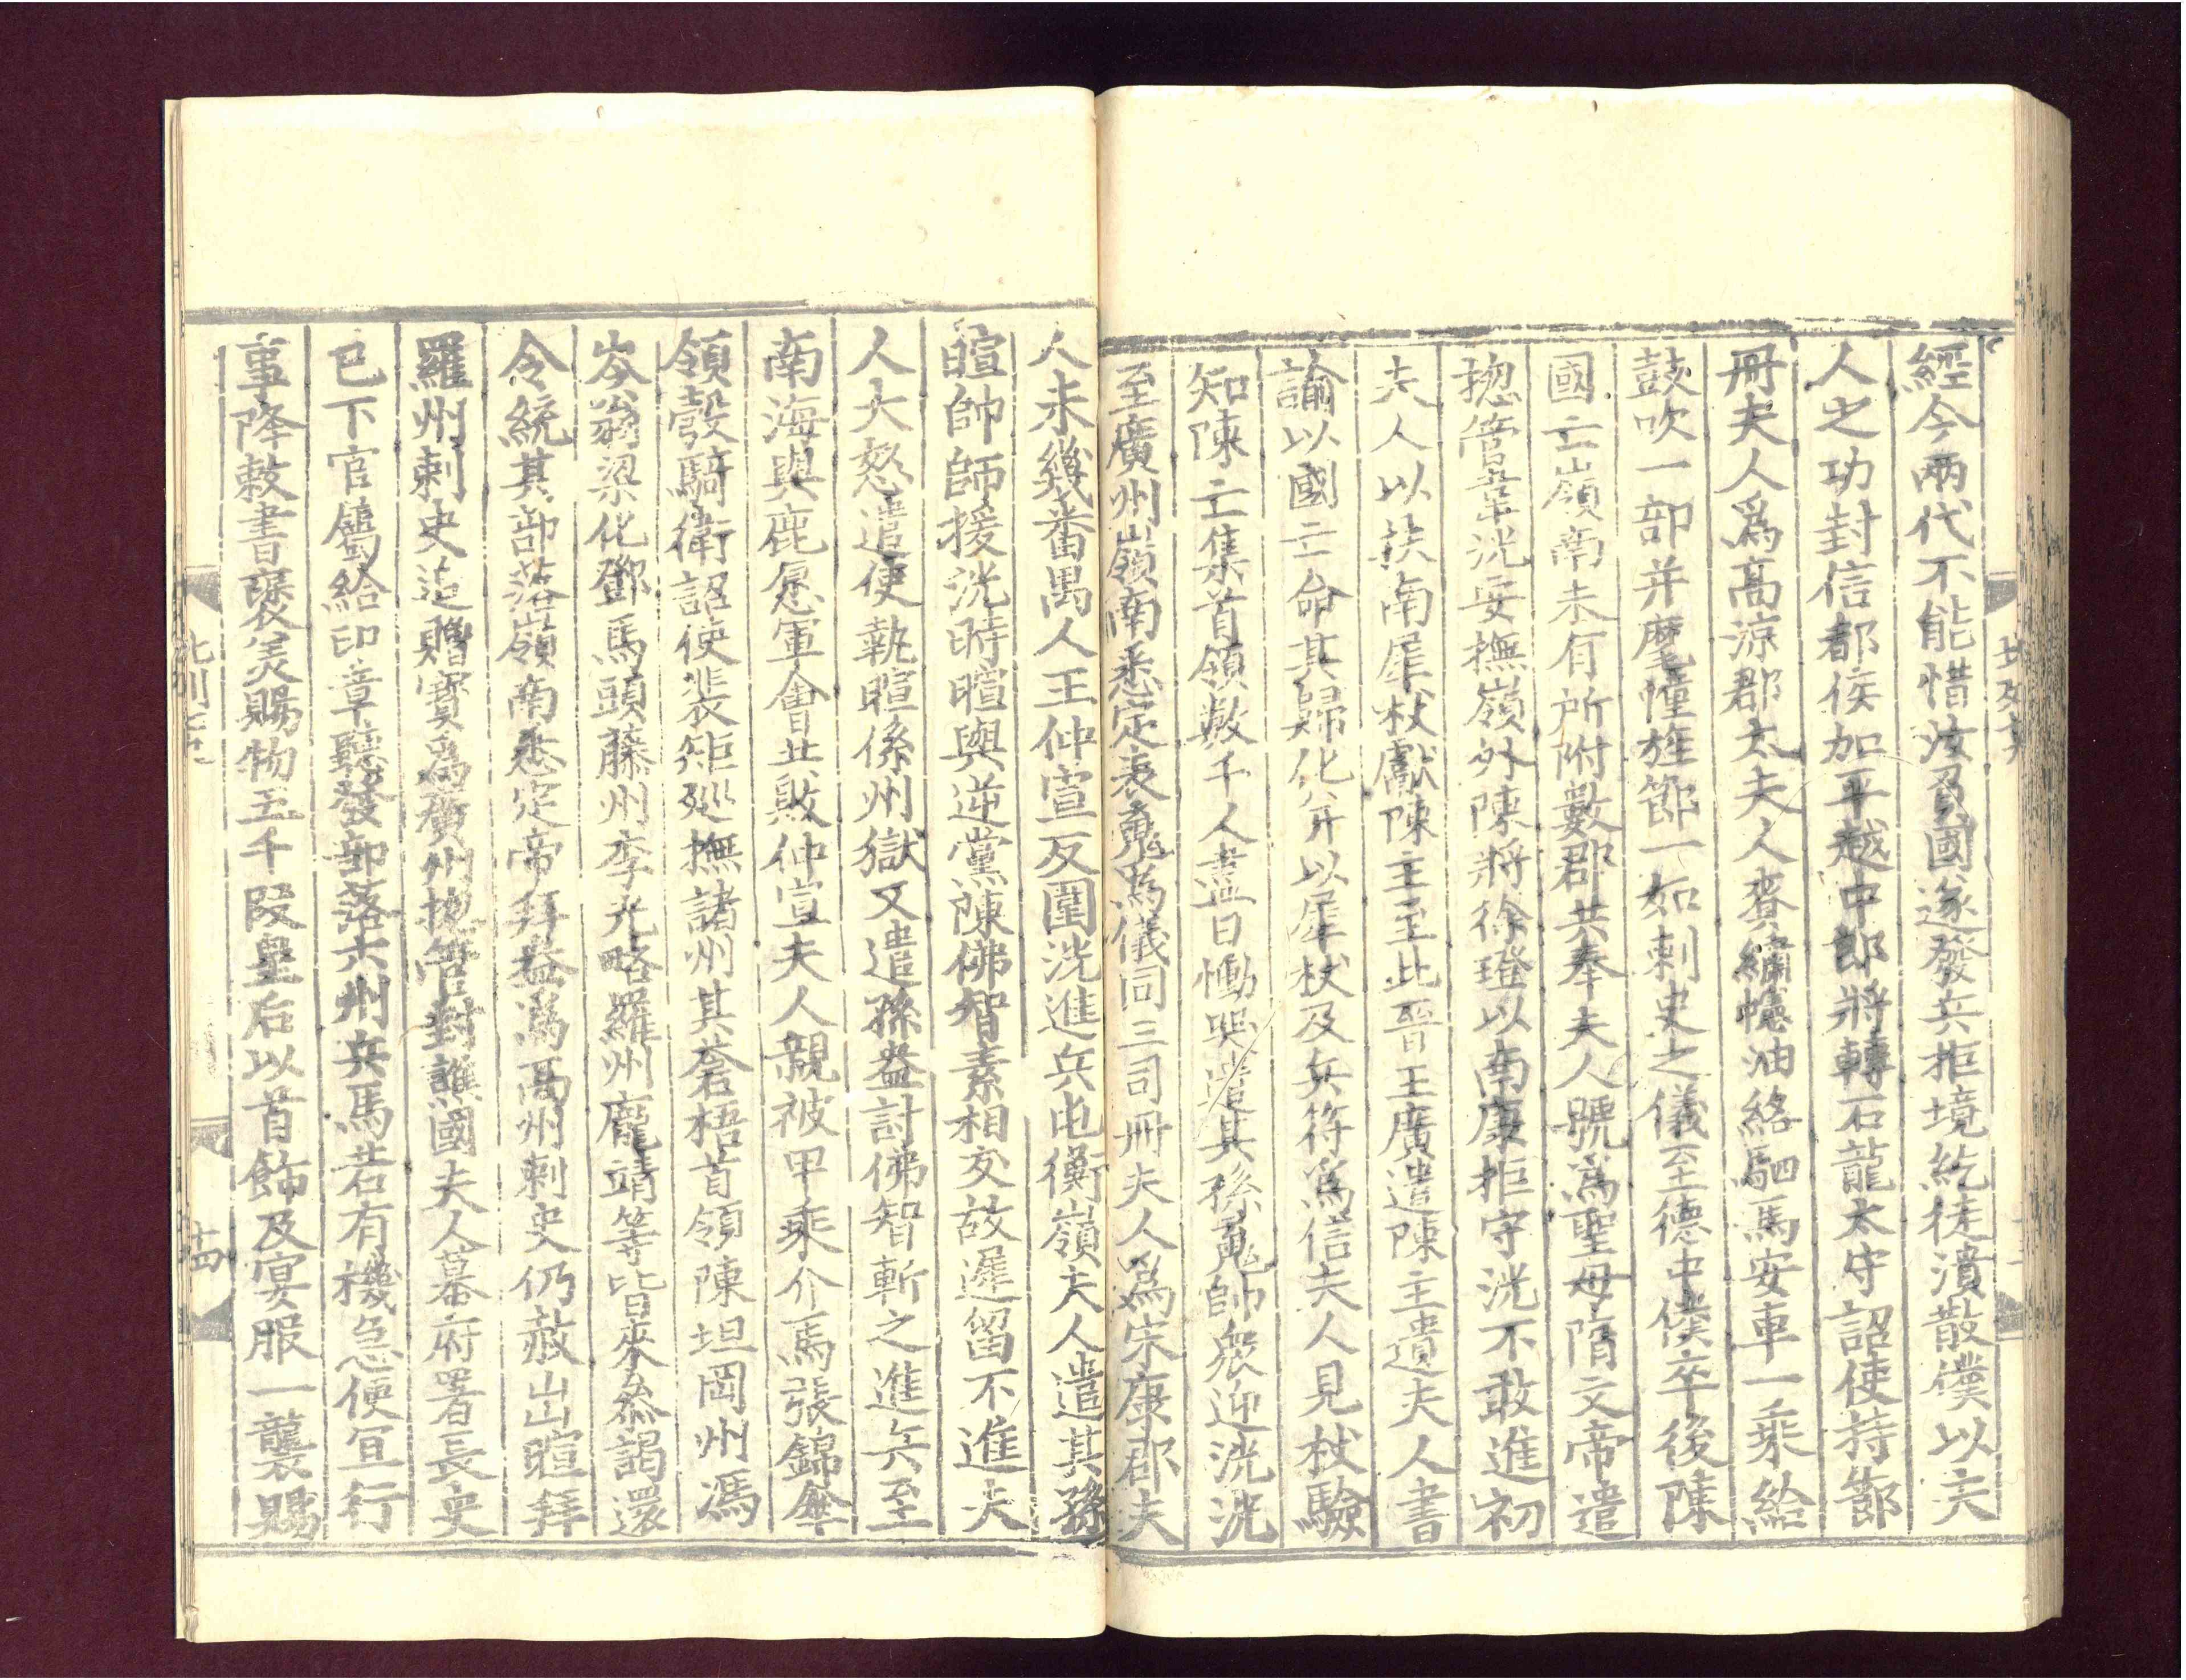 經今兩代不能惜汝負國遂發兵拒境紇徒潰散僕以夫
人之功封信都侯加平越中郎將轉石龍太守詔使持節
冊夫人爲高涼郡太夫人賚繡幰油絡駟馬安車一乘給
鼓吹一部并麾幢旌節一如刺史之儀至德中僕卒後陳
國亡嶺南未有所附數郡共奉夫人號爲聖母隋文帝遣
揔管韋洸安撫嶺外陳將徐璒以南康拒守洸不敢進初
夫人以扶南犀杖獻陳主至此晉王廣遣陳主遺夫人書
諭以國亡命其歸化并以犀杖及兵符爲信夫人見杖驗
知陳亡集首領數千人盡日慟哭遣其孫魂師衆迎洸洸
至廣州嶺南悉定表魂爲儀同三司冊夫人爲宋康郡夫
人未幾番禺人王仲宣反圍洸進兵屯衡嶺夫人遣其孫
暄帥師援洸時暄與逆黨陳佛智素相友故遲留不進夫
人大怒遣使執暄係州獄又遣孫盎討佛智斬之進兵至
南海與鹿愿軍會共敗仲宣夫人親被甲乘介馬張錦傘
領彀騎衛詔使裴矩廵撫諸州其蒼梧首領陳坦岡州馮
岑翁梁化鄧馬頭藤州李光略羅州龐靖等皆來叅謁還
令統其部落嶺南悉定帝拜盎爲高州刺史仍赦出暄拜
羅州刺史追贈寶爲廣州揔管封譙國夫人幕府署長史
已下官屬給印章聽發部落六州兵馬若有機急便宜行
事降敕書襃美賜物五千段皇后以首飾及宴服一襲賜
十四